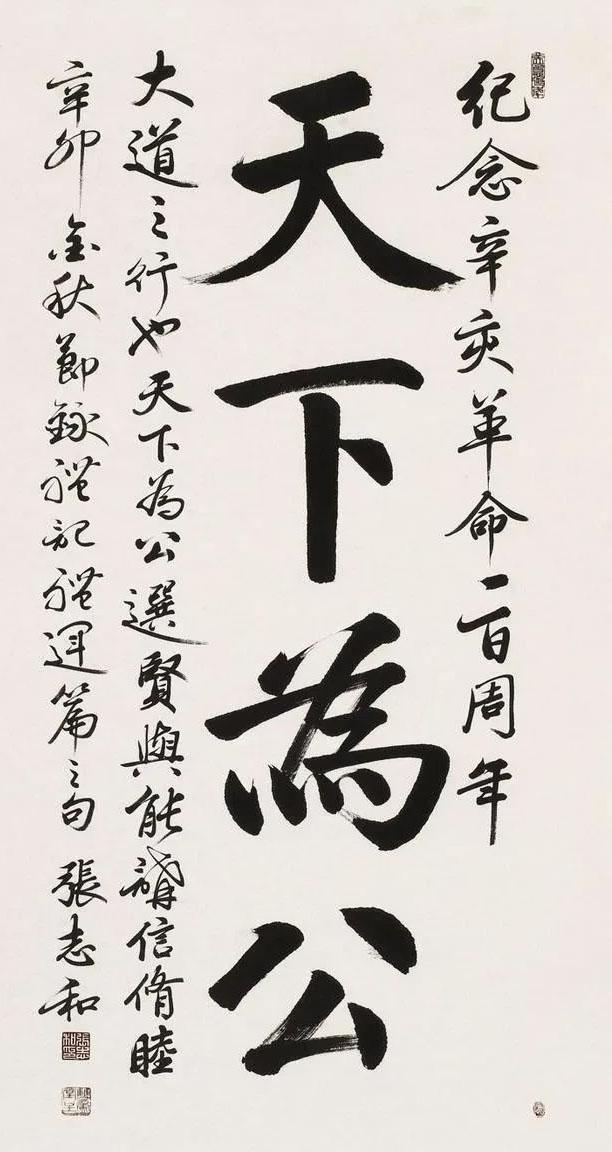 紀念辛亥革命一百周年
天下為公
大道之行也天下為公選賢與能講信脩睦
辛卯金秋節錄禮記禮運篇之句 張志和